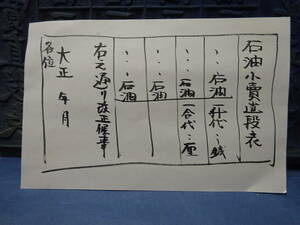 石油小賣直段表
、、、石油一升代、、銭
、、、石油一合代、、厘
、、、石油
、、、石油
右之通り改正候事
大正 年 月
各位